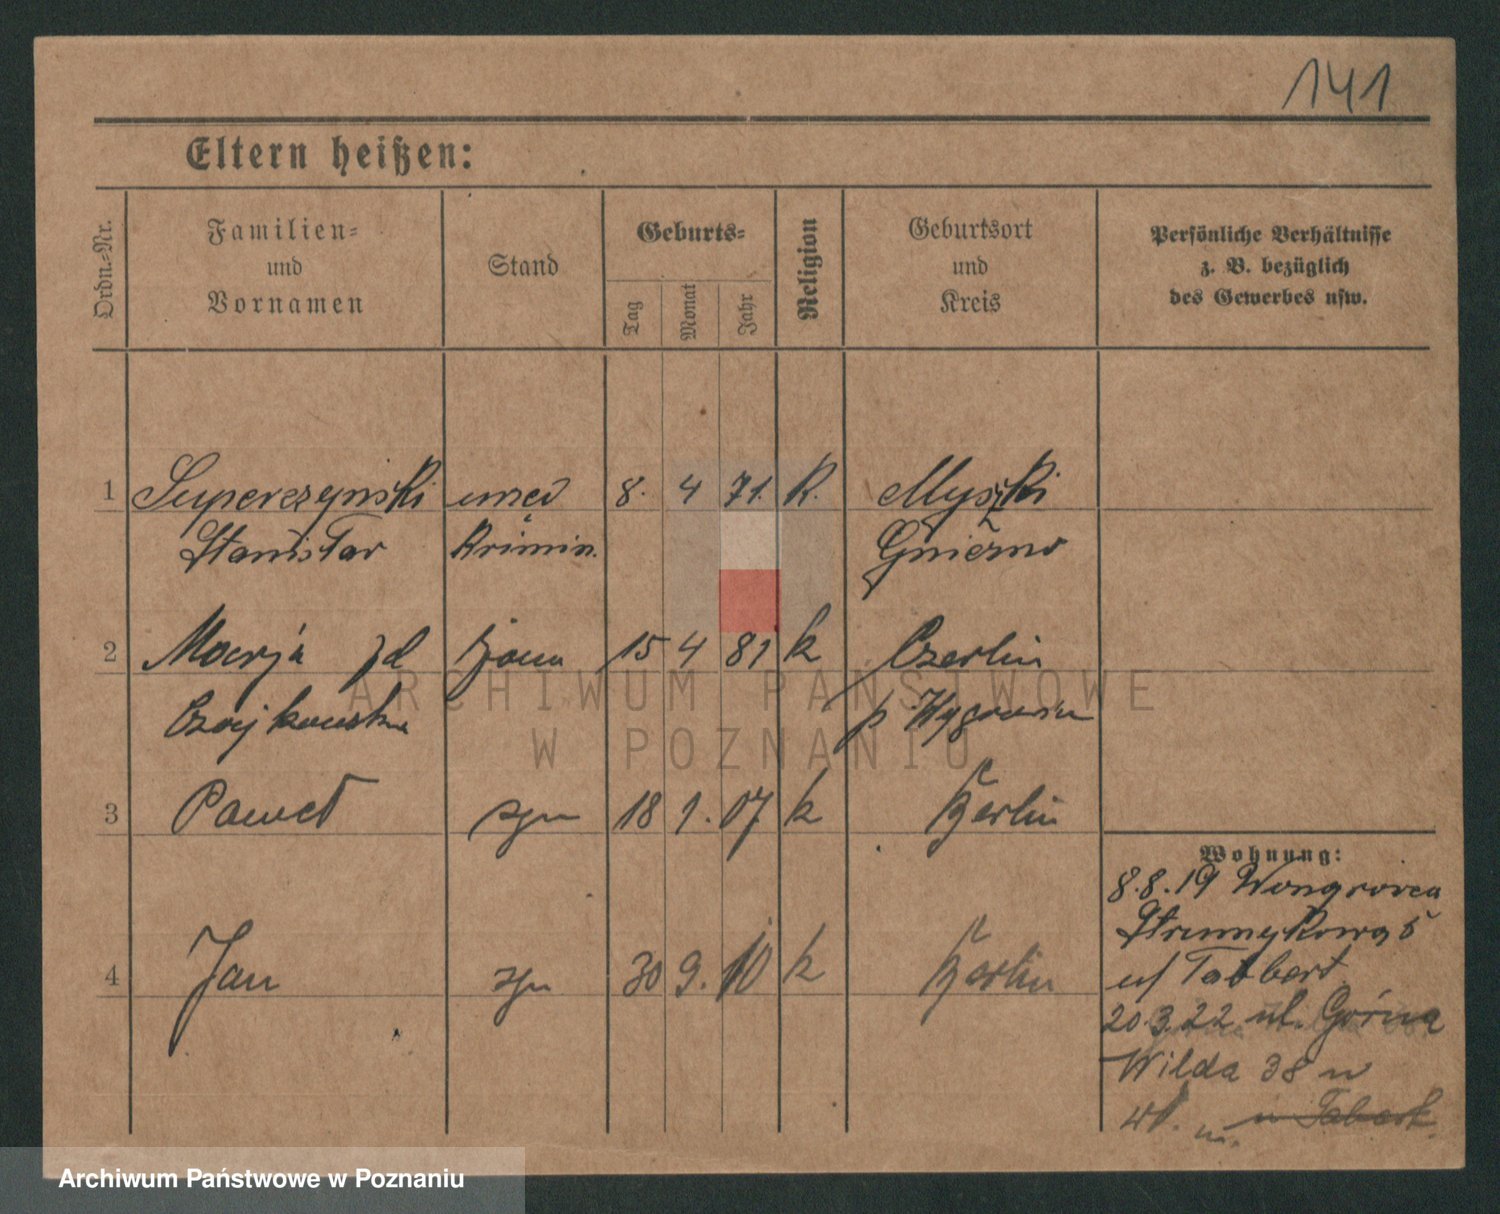 141
Eltern heißen:
Ordn.-Nr.
Familien-
und
Vornamen
Stand
Geburts-
Tag
Monat
Jahr
Religion
Geburtsort
und
Kreis
Persönliche Verhältnisse
z. B. bezüglich
des Gewerbes usw.
1 Superczynski urzęd 8. 4 71. K. Myszki
Stanisław Krimin. Gniezno
2 Marja żona 15 4 81 k Czerlin
Czajkowska p Wągrowiec
3 Paweł syn 18 1. 07 k Berlin
Wohnung:
8.8.19 Wongrowca
5
u/ Tabbert
4 Jan syn 30 9. 10 k Berlin
20.3.22 ul. Górna
Wilda 38 w
wł. u Tabert.
ARCHIWUM PAŃSTWOWE
W POZNANIU
Archiwum Państwowe w Poznaniu